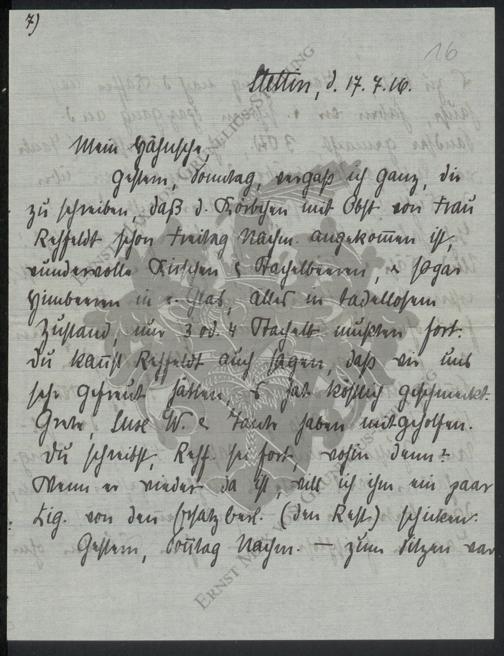 7)
16
Stettin, d. 17.7.16.
Mein Hähnsche
Gestern, Sonntag, vergaß ich ganz, dir
zu schreiben, daß d. Körbchen mit Obst von Frau
Rehfeldt schon Freitag Nachm. angekommen ist,
wundervolle Kirschen & Stachelbeeren, & sogar
Himbeeren in e. Glas, alles in tadellosem
Zustand, nur 3 od. 4 Stachelb. mußten fort.
Du kannst Rehfeldt auch sagen, daß wir uns
sehr gefreut hätten, es hat köstlich geschmeckt.
Grete, Luse W. & Tante haben mitgeholfen.
Du schreibst, Rehf. sei fort wohin denn?
Wenn er wieder da ist, will ich ihm ein paar
Zig. von den (den Rest) schicken.
Gestern, Sonntag Nachm. — zum Sitzen war
ERNST MORITZ VON GRUNELIUS-STIFTUNG